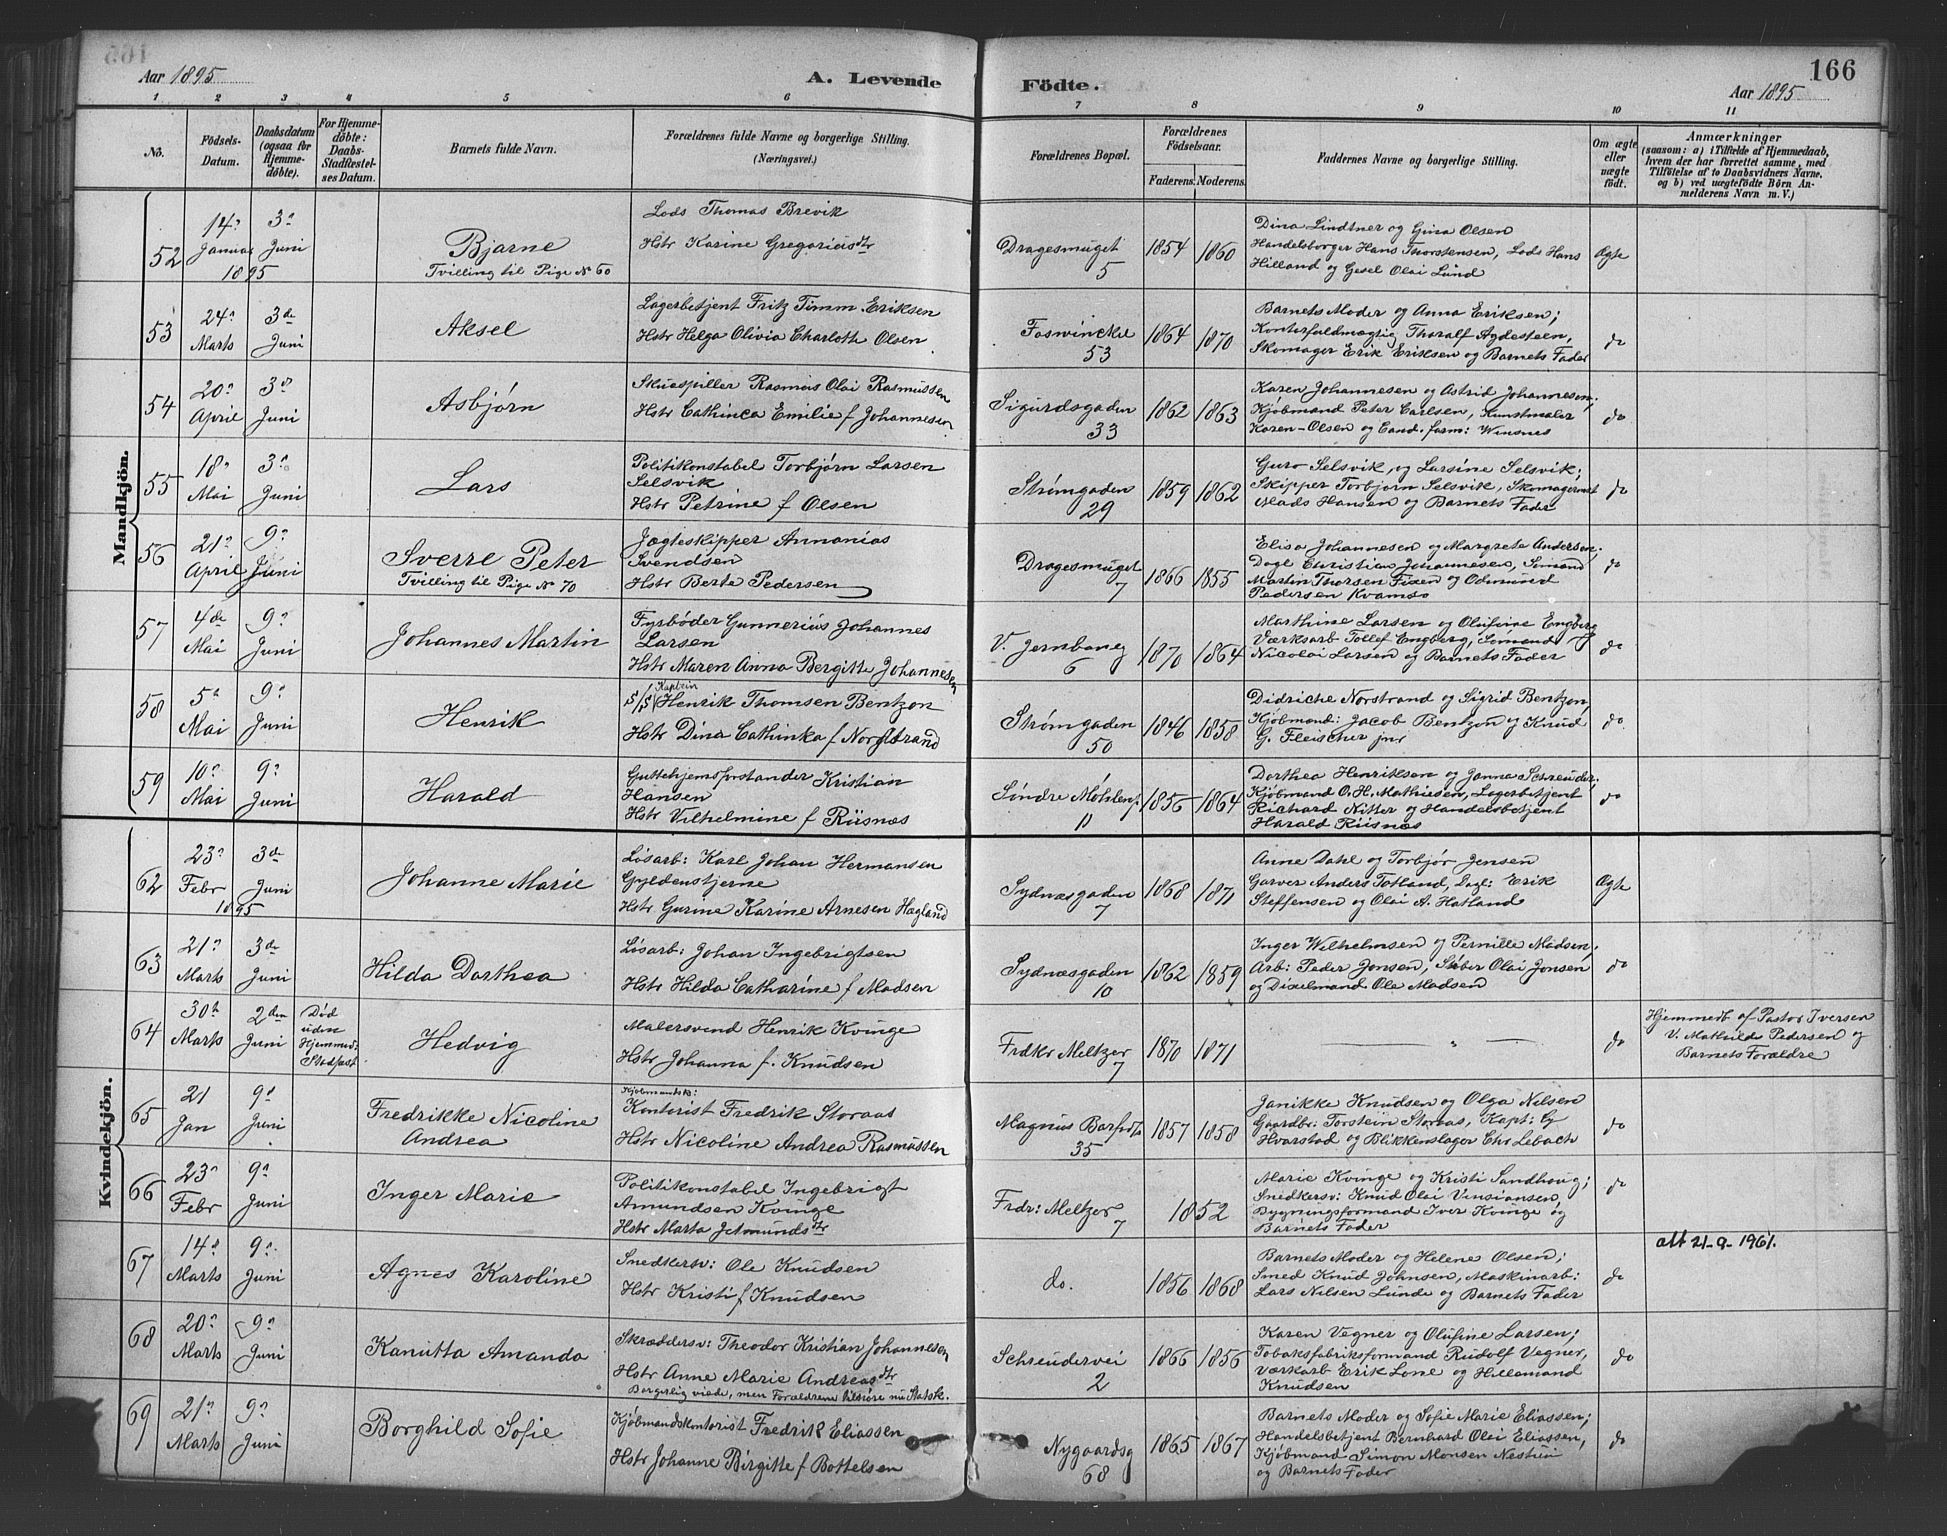 166
Aar 1895
A. Levende Födte.
Aar 1895
1 2 3 4 5 6 7 8 9 10 11
No.
Födsels-Datum.
Daabsdatum (ogsaa for Hjemmedöbte).
For Hjemmedöbte: Daabs-Stadfestelses Datum.
Barnets fulde Navn.
Forældrenes fulde Navne og borgerlige Stilling. (Næringsvei.)
Forældrenes Bopæl.
Forældrenes Födselsaar.
Faderens. Moderens.
Faddernes Navne og borgerlige Stilling.
Om ægte eller uægte födt.
Anmærkninger
(saasom: a) i Tilfælde af Hjemmedaab,
hvem der har forrettet samme, med
Tilföielse af to Daabsvidners Navne,
og b) ved uægtefödte Börn Anmelderens Navn m. V.)
Mandkjön.
52 14de Januar 1895 3de Juni
Bjarne
Tvilling til Pige No 60
Lods Thomas Brevik
Hstr Karine Gregoriusdtr
Dragesmuget 5
1854 1860
Dina Lindtner og Gina Olsen
Handelsborger Hans Thorstensen, Lods Hans
Hilland og Gesel Olai Lund
Ægte
53 24de Marts 3de Juni
Aksel
Lagerbetjent Fritz Timm Eriksen
Hstr Helga Olivia Charlotte Olsen
Foswinckel 53
1864 1870
Barnets Moder og Anna Eriksen;
Kontorfuldmægtig Thoralf Agdesteen,
Skomager Erik Eriksen og Barnets Fader
do
54 20de April 3de Juni
Asbjørn
Skuespiller Rasmus Olai Rasmussen
Hstr Cathinca Emilie f Johannesen
Sigurdsgaden 33
1862 1863
Karen Johannesen og Astrid Johannesen;
Kjøbmand Peter Carlsen, Kunstmaler
Karen-Olsen og Cand. farm: Winsnes
do
55 18de Mai 3de Juni
Lars
Politikonstabel Torbjørn Larsen
Selsvik
Hstr Petrine f Olsen
Strømgaden 29
1859 1862
Guro Selsvik, og Larsine Selsvik;
Skipper Torbjørn Selsvik, Skomagermst
Mads Hansen og Barnets Fader
do
56 21de April 9de Juni
Sverre Peter
Tvilling til Pige No 70
Jægteskipper Annanias
Svendsen
Hstr Berte Pedersen
Dragesmuget 7
1866 1855
Elisa Johannesen og Margrete Andersen;
Dagl Christian Johannesen, Sømand
Martin Thorsen Fixen og Odmund
Pedersen Kvamsø
do
57 4de Mai 9de Juni
Johannes Martin
Fyrbøder Gunnerius Johannes
Larsen
Hstr Maren Anna Bergitte Johannesen
V. Jernbaneg 6
1870 1864
Marthine Larsen og Olufine Engberg
Værksarb Tollef Engberg, Sømand
Nicolai Larsen og Barnets Fader
do
58 5te Mai 9de Juni
Henrik
Kaptein
S/S Henrik Thomsen Bentzon
Hstr Dina Cathinka f Nordstrand
Strømgaden 50
1846 1858
Didriche Norstrand og Sigrid Bentzon,
Kjøbmand: Jacob Bentzon og Knud
G. Fleischer jnr
do
59 10de Mai 9de Juni
Harald
Guttehjemsforstander Kristian
Hansen
Hstr Vilhelmine f Riisnæs
Søndre Møhlenp. 11
1856 1864
Dorthea Henriksen og Janna Schreuder,
Kjøbmand O. H. Mathiesen, Lagerbetjent
Richard Nitter og Handelsbetjent
Harald Riisnæs
do
Kvindekjön.
62 23de Febr 1895 3de Juni
Johanne Marie
Løsarb: Karl Johan Hermansen
Gyldenstjerne
Hstr Gurine Karine Arnesen Hægland
Sydnæsgaden 7
1868 1871
Anne Dahl og Torbjør Jensen
Garver Anders Totland, Dagl: Erik
Steffensen og Olai A. Hatland
Ægte
63 21de Marts 3de Juni
Hilda Dorthea
Løsarb: Johan Ingebrigtsen
Hstr Hilda Catharine f Madsen
Sydnæsgaden 10
1862 1859
Inger Wilhelmsen og Pernille Madsen;
Arb: Peder Jonsen, Støber Olai Jonsen
og Dixelmand Ole Madsen
do
64 30te Marts 2den Juni
Død uden Hjemmed. Stadfæst
Hedvig
Malersvend Henrik Kvinge
Hstr Johanna f. Knudsen
Frdkr Meltzer 7
1870 1871
— " —
do
Hjemmedb af Pastor Iversen
V. Mathilde Pedersen og
Barnets Forældre
65 21 Jan 9de Juni
Fredrikke Nicoline
Andrea
Kjøbmandsk:
Kontorist Fredrik Storaas
Hstr Nicoline Andrea Rasmussen
Magnus Barfods 35
1857 1858
Janikke Knudsen og Olga Nilsen
Gaardbr: Torstein Storaas, Kapt: G
Hvarstad og Blikkenslager Chr Lebach
do
66 23de Febr 9de Juni
Inger Marie
Politikonstabel Ingebrigt
Amundsen Kvinge
Hstr Marta Jetmundsdtr
Frdr: Meltzer 7
1852
Marie Kvinge og Kristi Sandhoug;
Snedkersv: Knud Olai Vinsiansen,
Bygningsformand Iver Kvinge og
Barnets Fader
do
67 14de Marts 9de Juni
Agnes Karoline
Snedkersv: Ole Knudsen
Hstr Kristi f Knudsen
do.
1856 1868
Barnets Moder og Helene Olsen;
Smed Knud Johnsen, Maskinarb:
Lars Nilsen Lunde og Barnets Fader
do
att 21-9-1961.
68 20de Marts 9de Juni
Kanutta Amanda
Skræddersv: Theodor Kristian Johannesen
Hstr Anne Marie Andreasdtr
Borgerlig viede, men Forældrene tilhøre nu Statsk.
Schreudervei 2
1866 1856
Karen Vegner og Olufine Larsen;
Tobaksfabriksformand Rudolf Vegner,
Værkarb Erik Lone og Hillemand
Knudsen
do
69 21de Marts 9de Juni
Borghild Sofie
Kjøbmandskontorist Fredrik Eliassen
Hstr Johanne Birgitte f Bottelsen
Nygaardsg 68
1865 1867
Barnets Moder og Sofie Marie Eliassen;
Handelsbetjent Bernhard Olai Eliassen,
Kjøbmand Simon Monsen Nestun
og Barnets Fader
do